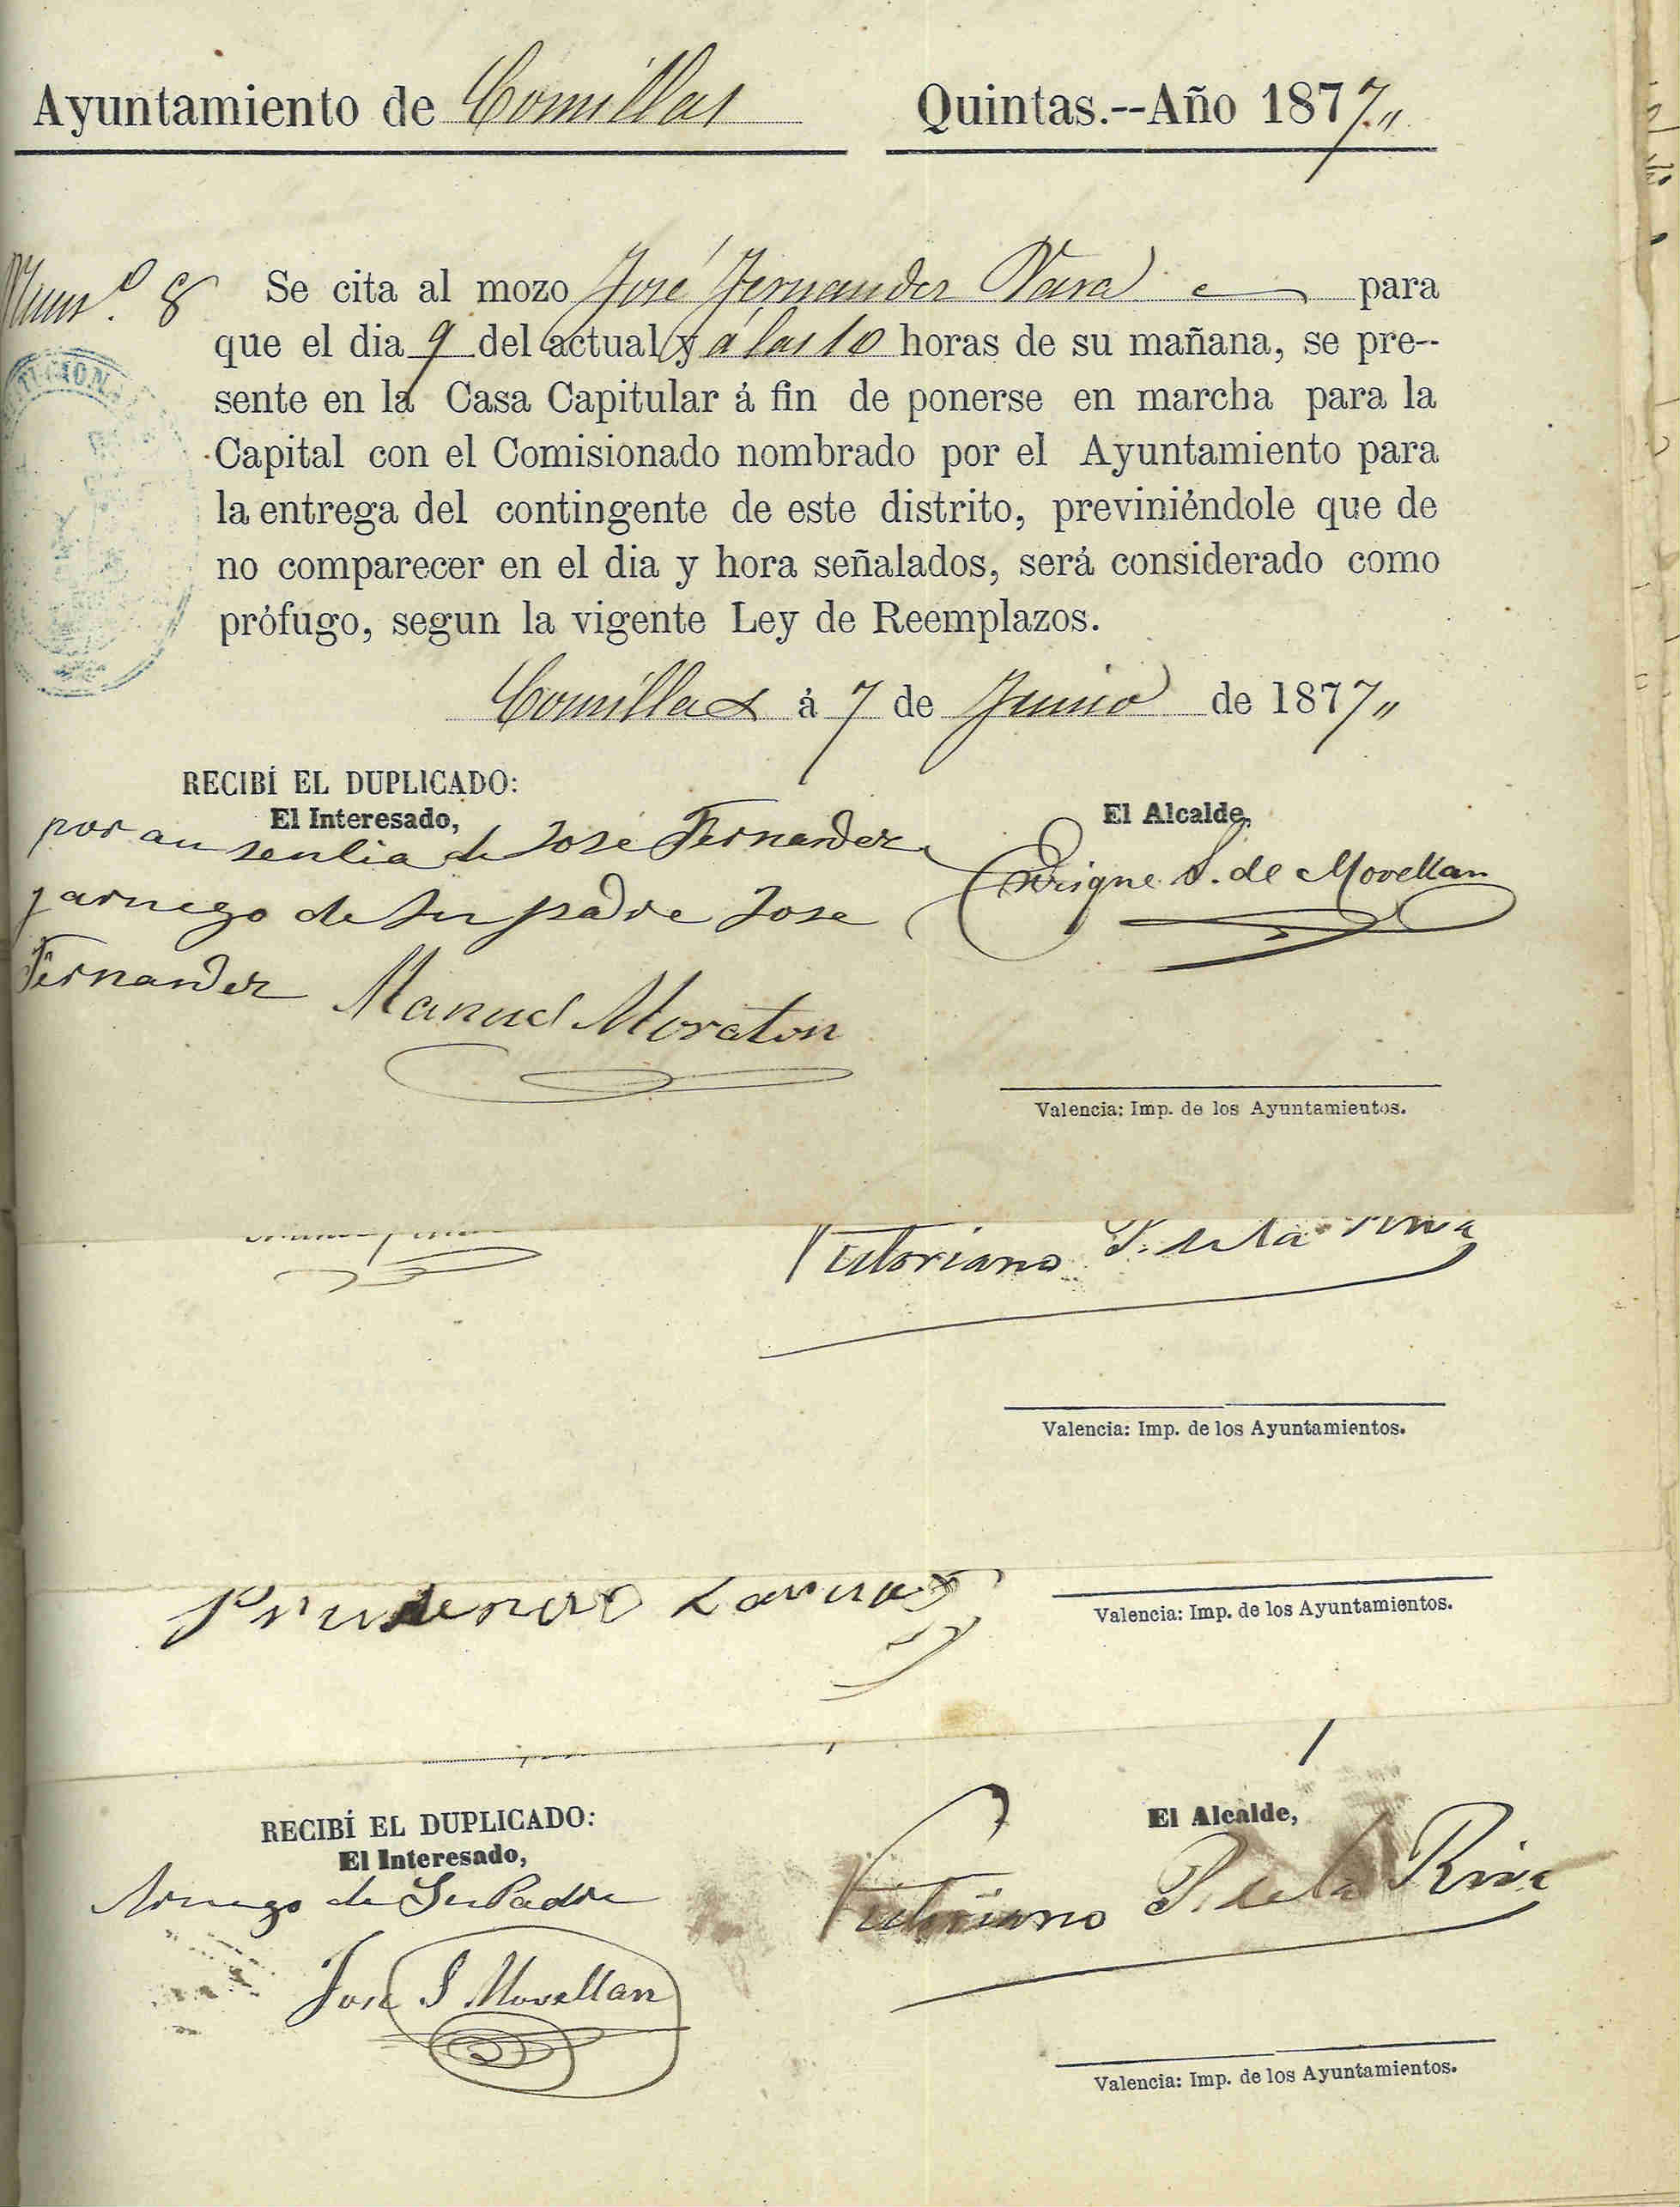 Ayuntamiento de Comillas Quintas.--Año 1877,,
Num.º 8 Se cita al mozo José Fernandez Vara para
que el dia 9 del actual y á las 10 horas de su mañana, se pre--
sente en la Casa Capitular á fin de ponerse en marcha para la
Capital con el Comisionado nombrado por el Ayuntamiento para
la entrega del contingente de este distrito, previniéndole que de
no comparecer en el dia y hora señalados, será considerado como
prófugo, segun la vigente Ley de Reemplazos.
Comillas á 7 de Junio de 1877,,
RECIBÍ EL DUPLICADO:
El Interesado,
por ausentia de José Fernandez
y arruego de su padre Jose
Fernandez Manuel Moraton
El Alcalde,
Enrique S. de Movellan
Valencia: Imp. de los Ayuntamientos.
Victoriano P. de la Riva
Valencia: Imp. de los Ayuntamientos.
Valencia: Imp. de los Ayuntamientos.
RECIBÍ EL DUPLICADO:
El Interesado,
Arruego de Su Padre
José S Movellan
El Alcalde,
Victoriano P. de la Riva
Valencia: Imp. de los Ayuntamientos.